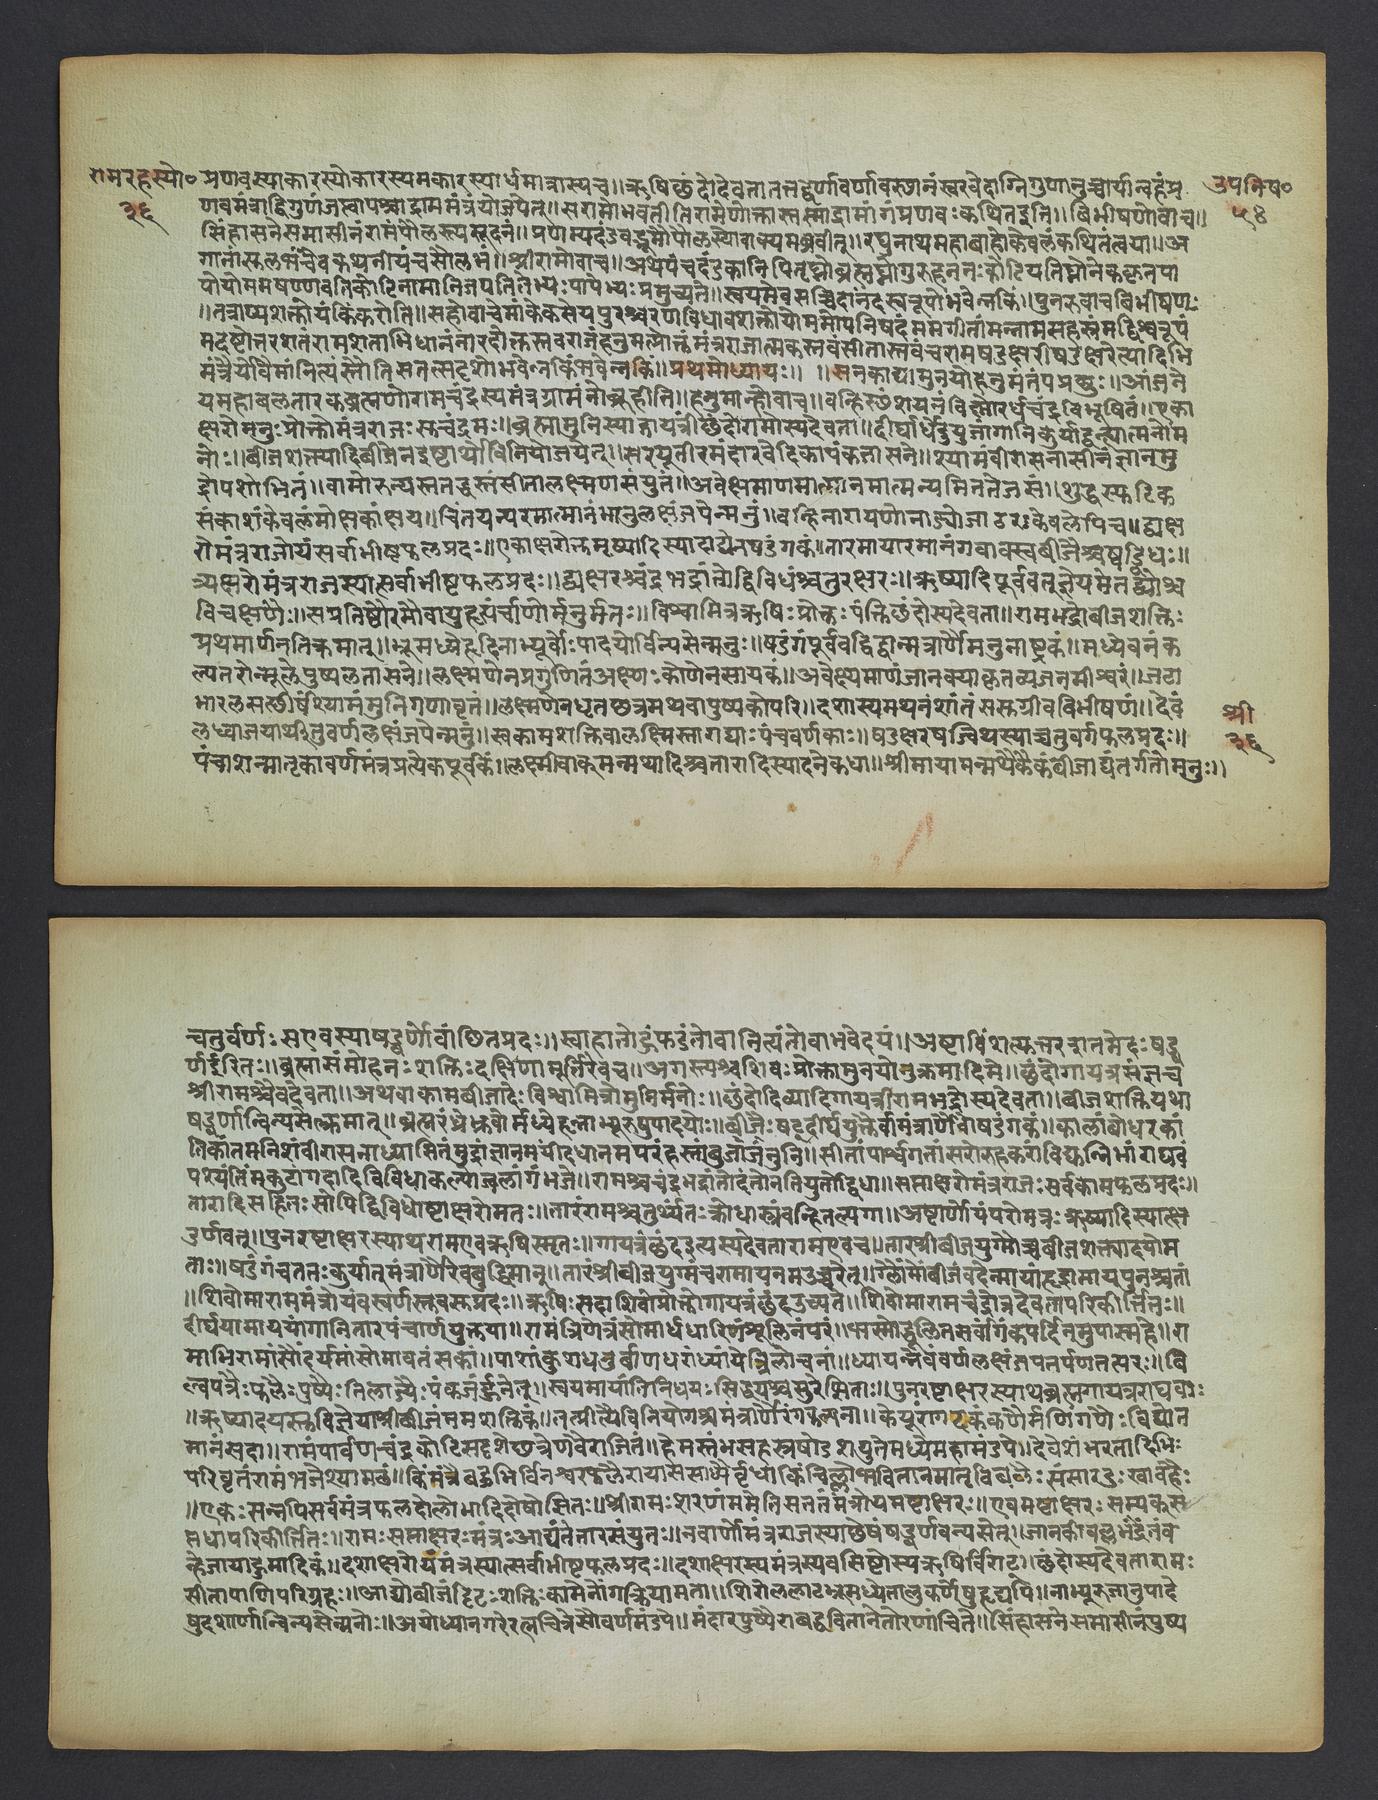 रामरहस्यो०
३६
उपनिष०
५४
प्रणवस्याकारस्योकारस्यमकारस्यार्धमात्रास्यच॥ऋषिछंदोदेवतातत्तद्वर्णावर्णावस्थानंस्वरवेदाग्निगुणानुच्चार्यान्वहंप्र
णवमंत्राद्द्विगुणंजप्त्वापश्चाद्राममंत्रंयोजपेत्॥सरामोभवतीतिरामेणोक्तास्तस्माद्रामांगंप्रणवःकथितइति॥विभीषणोवाच॥
सिंहासनेसमासीनंरामंपौलस्त्यसूदनं॥प्रणम्यदंडवद्भूमौपौलस्त्योवाक्यमब्रवीत्॥रघुनाथमहाबाहोकेवलंकथितंत्वया॥अ
गानांसुलभंचैवकथनीयंचसौलभं॥श्रीरामोवाच॥अथपंचदंडकानिपितृघ्नोब्रह्मघ्नोगुरुहननःकोटियतिघ्नोनेककृतपा
पोयोममषण्णवतिकोटिनामानिजपतितेभ्यःपापेभ्यःप्रमुच्यते॥स्वयमेवसच्चिदानंदस्वरूपोभवेन्नकिं॥पुनरुवाचबिभीषणः
॥तत्राप्यशक्तोयंकिंकरोति॥सहोवाचेमंकैकसेयपुरश्चरणविधावशक्तोयोममोपनिषदंममगीतांमन्नामसहस्रमद्विश्वरूपं
मदष्टोत्तरशतंरामशताभिधानंनारदोक्तस्तवराजंहनुमत्प्रोक्तंमंत्रराजात्मकस्तवंसीतास्तवंचरामषडक्षरीषडक्षरेत्यादिभि
र्मंत्रैर्योवैमांनित्यंस्तौतिसतत्सदृशोभवेन्नकिंभवेन्नकिं॥प्रथमोध्यायः॥॥सनकाद्यामुनयोहनुमंतंपप्रच्छुः॥आंजने
यमहाबलतारकब्रह्मणोरामचंद्रस्यमंत्रग्रामंनोब्रूहीति॥हनुमान्होवाच॥वन्हिस्थंशयनंविष्णोरर्धचंद्रविभूषितं॥एका
क्षरोमनुःप्रोक्तोमंत्रराजःसुरद्रुमः॥ब्रह्मामुनिस्याद्गायत्रीछंदोरामोस्यदेवता॥दीर्घार्धेंदुयुजांगानिकुर्याद्वन्ह्यात्मनोम
नोः॥बीजशक्त्यादिबीजेनइष्टार्थेविनियोजयेत्॥सरयूतीरमंदारवेदिकापंकजासने॥श्यामंवीरासनासीनंज्ञानमु
द्रोपशोभितं॥वामोरुन्यस्ततद्धस्तंसीतालक्ष्मणसंयुतं॥अवेक्षमाणमात्मानमात्मन्यमिततेजसं॥शुद्धस्फटिक
संकाशंकेवलंमोक्षकांक्षया॥चिंतयन्परमात्मानंभानुलक्षंजपेन्मनुं॥वन्हिनारायणोनाड्योजाठरःकेवलोपिच॥द्व्यक्ष
रोमंत्रराजोयंसर्वाभीष्टफलप्रदः॥एकाक्षरोक्तमृष्यादिस्यादाद्येनषडंगकं॥तारमायारमानंगवाक्स्वबीजैश्चषड्विधः॥
त्र्यक्षरोमंत्रराजस्यात्सर्वाभीष्टफलप्रदः॥द्व्यक्षरश्चंद्रभद्रांतोद्विविधश्चतुरक्षरः॥ऋष्यादिपूर्ववज्ज्ञेयमेतद्द्वयोश्च
विचक्षणैः॥सप्रतिष्ठौरमौवायुहृत्पंचार्णोर्मनुर्मतः॥विश्वामित्रऋषिःप्रोक्तःपंक्तिछंदोस्यदेवता॥रामभद्रोबीजशक्तिः
प्रथमार्णनतिक्रमात्॥भ्रूमध्येहृदिनाभ्यूर्वोःपादयोर्विन्यसेन्मनुः॥षडंगंपूर्ववद्विद्वान्मंत्रार्णैर्मनुनास्त्रकं॥मध्येवनंक
ल्पतरोर्मूलेपुष्पलतासने॥लक्ष्मणेनप्रगुणितंअक्ष्णःकोणेनसायकं॥अवेक्ष्यमाणंजानक्याकृतव्यजनमीश्वरं॥जटा
भारलसच्छीर्षंश्यामंमुनिगणावृतं॥लक्ष्मणेनधृतछत्रमथवापुष्पकोपरि॥दशास्यमथनंशांतंससुग्रीवविभीषणं॥देवं
लध्वाजयार्थीतुवर्णलक्षंजपेन्मनुं॥स्वकामशक्तिवालक्ष्मिस्तागद्याःपंचवर्णकाः॥षडक्षरषड्विधस्याच्चतुवर्गफलप्रदः॥
पंचाशन्मातृकावर्णमंत्रप्रत्येकपूर्वकं॥लक्ष्मीवाक्मन्मथादिश्चतारादिस्यादनेकधा॥श्रीमायामन्मथैकैकंबीजाद्यंतर्गतोमनुः॥
श्री
३६
चतुर्वर्णःसएवस्यात्षड्वर्णोवांछितप्रदः॥स्वाहांतोहुंफडंतोवानित्यंतोवाभवेदयं॥अष्टाविंशत्युत्तरशतमेदःषड्व
र्णईरितः॥ब्रह्मासंमोहनःशक्तिःदक्षिणामूर्तिरेवच॥अगस्त्यश्चशिवःप्रोक्तामुनयोनुक्रमादिमे॥छंदोगायत्रसंज्ञंच
श्रीरामश्चैवदेवता॥अथवाकामबीजादेःविश्वामित्रोमुनिर्मनोः॥छंदोदिव्यादिगायत्रीरामभद्रोस्यदेवता॥बीजशक्तियथा
षड्वर्णान्विन्यसेत्क्रमात्॥ब्रह्मरंध्रेभ्रुवोर्मध्येहृन्नाभ्यूरुषुपादयोः॥बीजैःषड्दीर्घयुक्तैर्वामंत्रार्णैर्वाषडंगकं॥कालांबोधरकां
तिकांतमनिशंवीरासनाध्यासितंमुद्रांज्ञानमयींदधानमपरंहस्तांबुजंजानुनि॥सीतांपार्श्वगतांसरोरुहकरांविद्युन्निभांराघवं
पश्यंतिंमकुटांगदादिविविधाकल्पोज्वलांगंभजे॥रामश्चचंद्रभद्रांतोदंतोनतियुतोद्विधा॥सप्ताक्षरोमंत्रराजःसर्वकामफलप्रदः॥
तारादिसहितःसोपिद्विविधोष्टाक्षरोमतः॥तारंरामश्चतुर्थ्यंतःक्रोधास्त्रंवन्हितल्पगा॥अष्टार्णोयंपरोमंत्रःऋष्यादिस्यात्ष
डर्णवत्॥पुनरष्टाक्षरस्याथरामएवऋषिस्मृतः॥गायत्रंछंदइत्यस्यदेवतारामएवच॥तारश्रीबीजयुग्मंचबीजशक्त्यादयोम
ताः॥षडंगंचततःकुर्यात्मंत्रार्णैरेवबुद्धिमान्॥तारंश्रीबीजयुग्मंचरामायनमउच्चरेत्॥ग्लौंमोंबीजंवदेन्मायांहृद्रामायपुनश्चतां
॥शिवोमाराममंत्रोयंवस्वर्णस्तुवसुप्रदः॥ऋषिःसदाशिवोप्रोक्तोगायत्रंछंदउच्यते॥शिवोमारामचंद्रोत्रदेवतापरिकीर्तितः॥
दीर्घयामाययांगानितारपंचार्णयुक्तया॥रामंत्रिणेत्रंसोमार्धधारिणंशूलिनंपरं॥भस्मोद्धूलितसर्वांगंकपर्दिनमुपास्महे॥रा
माभिरामांसौंदर्यमांसोमावतंसकां॥पाशांकुशधनुर्बाणधरांध्यायेत्त्रिलोचनां॥ध्यायन्नेवंवर्णलक्षंजपतर्पणतत्परः॥बि
ल्वपत्रैःफलैःपुष्पैःतिलाज्यैःपंकजैर्हुनेत्॥स्वयमायांतिनिधयःसिद्धयश्चसुरेप्सिताः॥पुनरष्टाक्षरस्याथब्रह्मगायत्रराघवाः
॥ऋष्यादयस्तुविज्ञेयाश्रीबीजंममशक्तिकं॥तत्प्रीत्यैविनियोगश्चमंत्रार्णैरंगकल्पना॥केयूरांगदकंकणैर्मणिगणैःविद्योत
मानंसदा॥रामंपार्वणचंद्रकोटिसदृशछत्रेणवैराजितं॥हेमस्तंभसहस्रषोडशयुतेमध्येमहामंडपे॥देवेशंभरतादिभिः
परिवृतंरामंभजेश्यामळं॥किंमंत्रैर्बहुभिर्विनश्वरफलैरायाससाध्यैर्वृथाकिंचिल्लोभवितानमात्रविफलैःसंसारदुःखावहैः
॥एकःसन्नपिसर्वमंत्रफलदोलोभादिदोषोज्झितः॥श्रीरामःशरणंममेतिसततंमंत्रोयमष्टाक्षरः॥एवमष्टाक्षरःसम्यक्स
प्तधापरिकीर्तितः॥रामःसप्ताक्षरःमंत्रःआद्यंतेतारसंयुतः॥नवार्णोमंत्रराजस्याछेषंषड्वर्णवन्यसेत्॥जानकीवल्लभंङेंतंव
न्हेजायाहुमादिकं॥दशाक्षरोयंमंत्रस्यात्सर्वाभीष्टफलप्रदः॥दशाक्षरस्यमंत्रस्यवसिष्ठोस्यऋषिर्विराट्॥छंदोस्यदेवतारामः
सीतापाणिपरिग्रहः॥आद्योबीजंद्विठःशक्तिःकामेनांगक्रियामता॥शिरोललाटभ्रूमध्येतालुकर्णेषुहृद्यपि॥नाभ्यूरुजानुपादे
षुदशार्णान्विन्यसेन्मनोः॥अयोध्यानगरेरत्नचित्रेसौवर्णमंडपे॥मंदारपुष्पैराबद्धवितानेतोरणांचिते॥सिंहासनेसमासीनंपुष्प